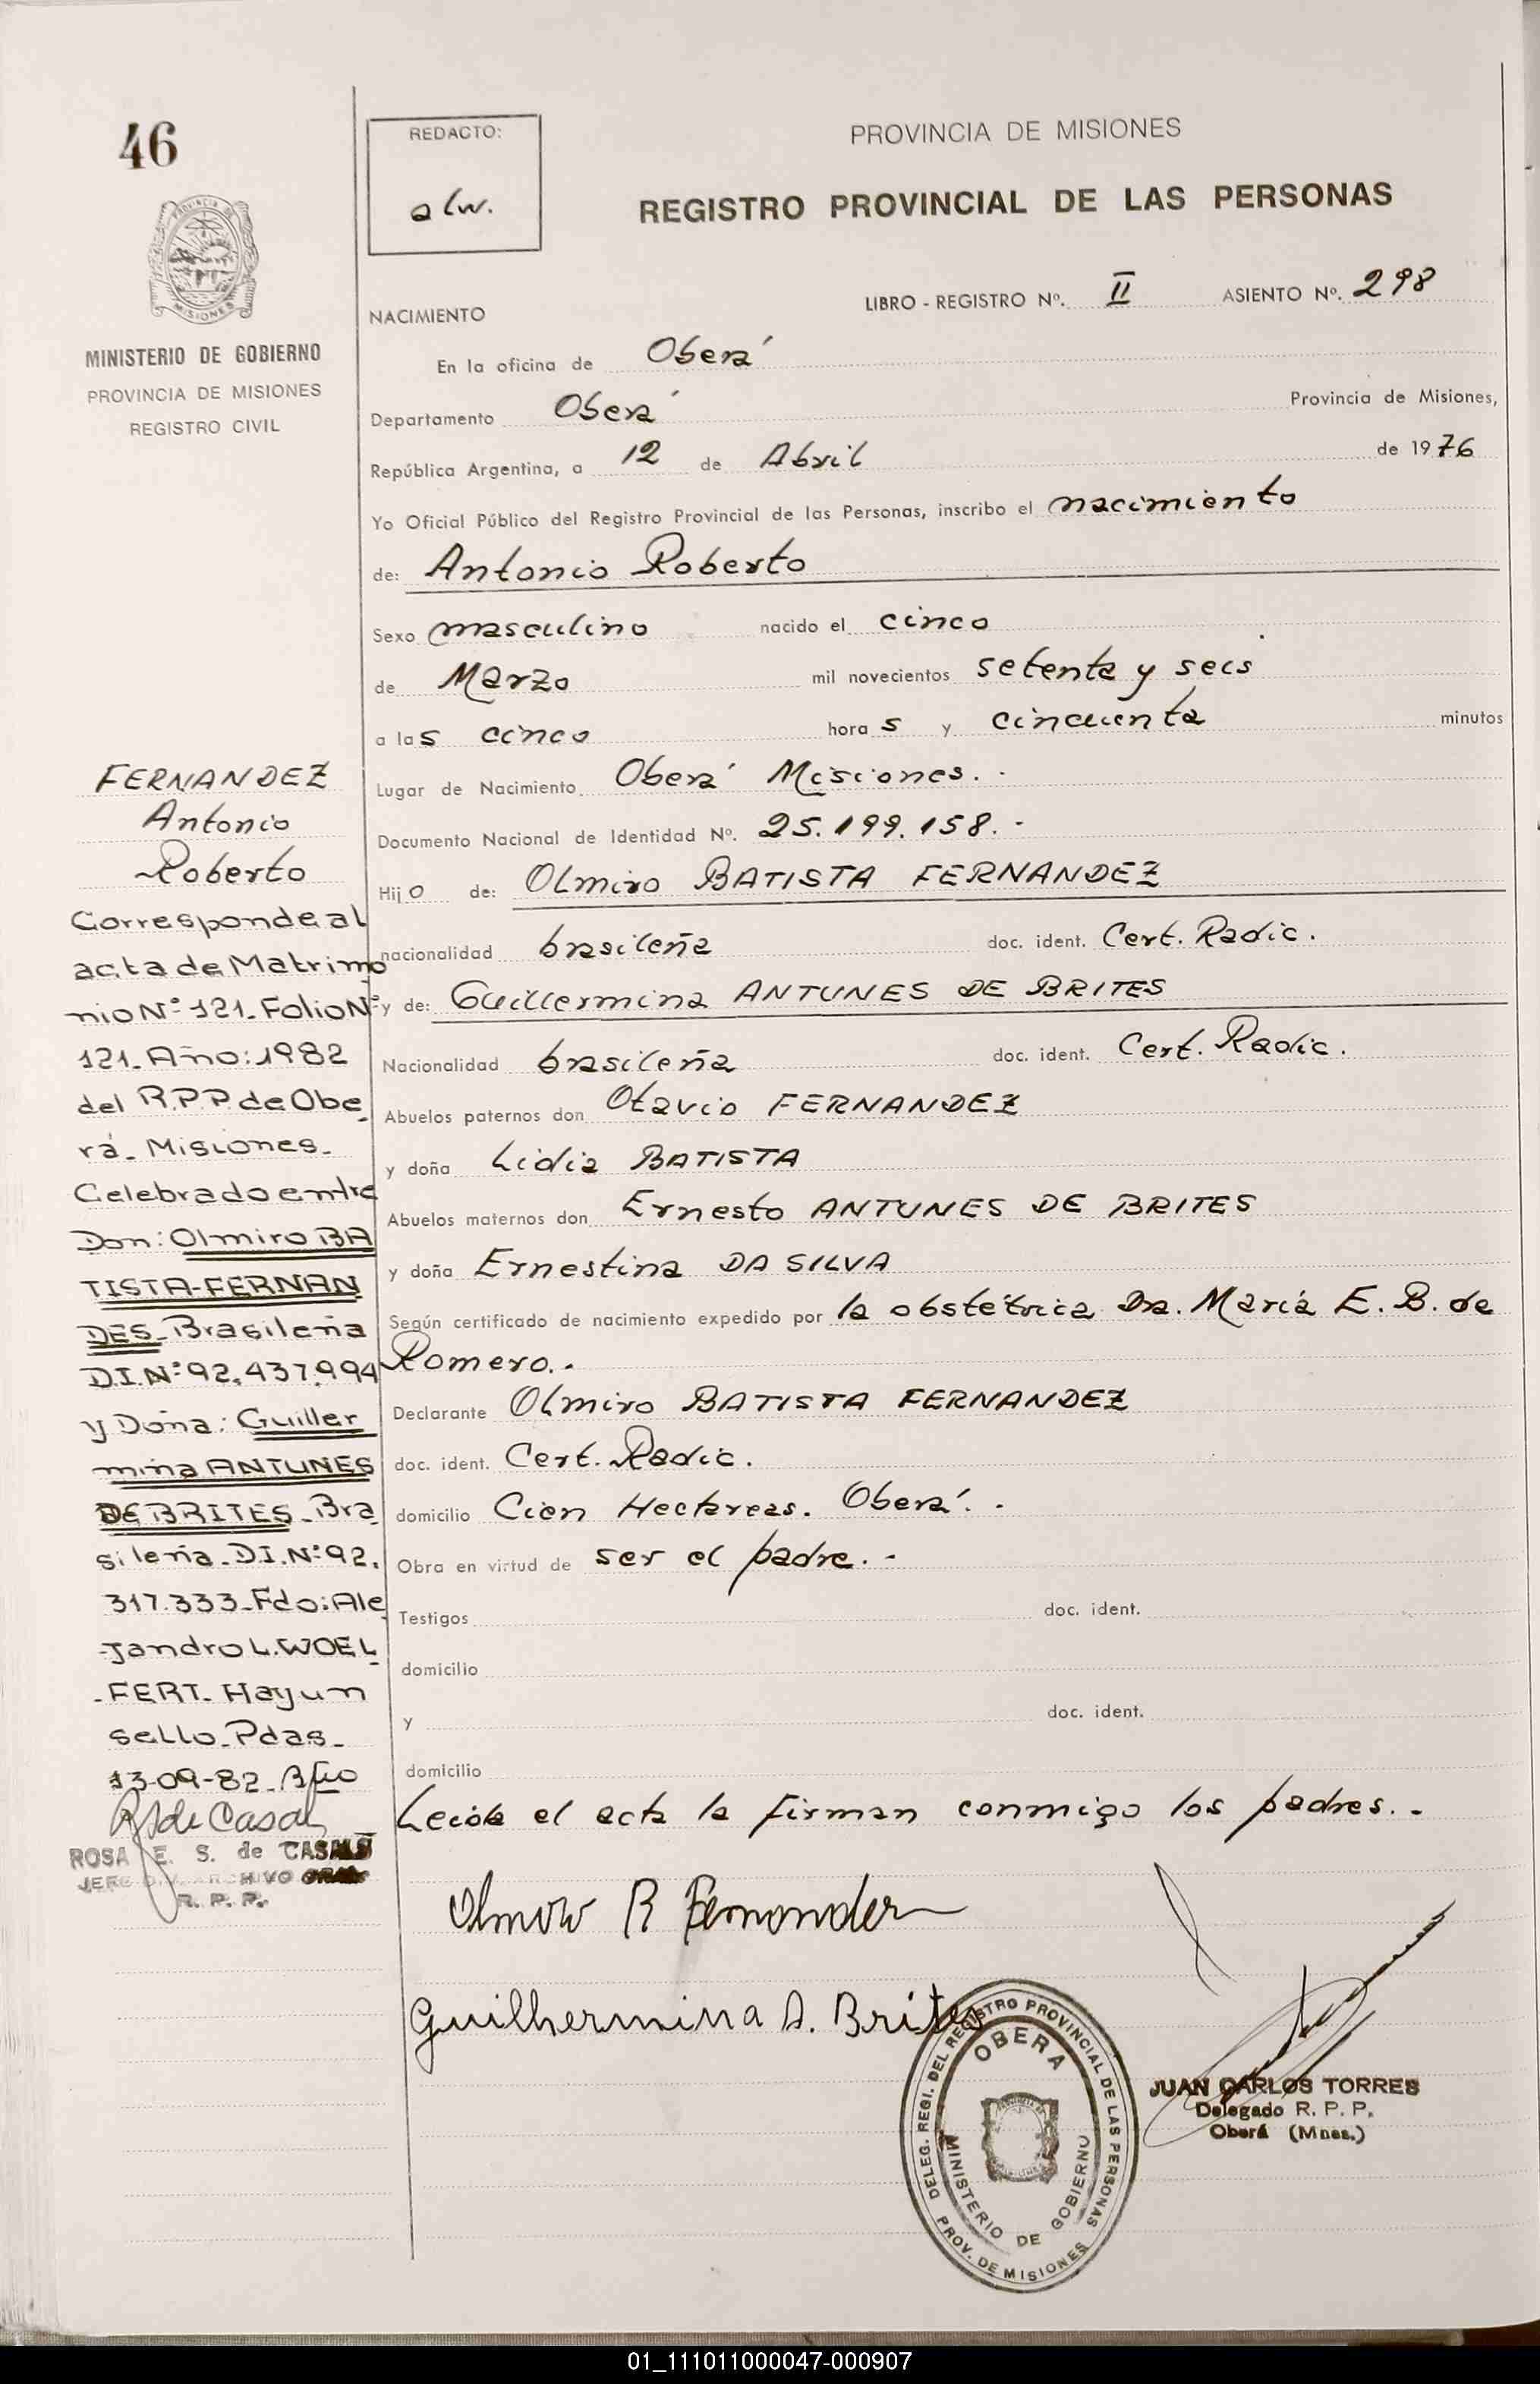 46
PROVINCIA DE MISIONES
MINISTERIO DE GOBIERNO
PROVINCIA DE MISIONES
REGISTRO CIVIL
REDACTO:
alw.
PROVINCIA DE MISIONES
REGISTRO PROVINCIAL DE LAS PERSONAS
LIBRO - REGISTRO Nº. II ASIENTO Nº. 298
NACIMIENTO
En la oficina de Oberá
Departamento Oberá Provincia de Misiones,
República Argentina, a 12 de Abril de 1976
Yo Oficial Público del Registro Provincial de las Personas, inscribo el nacimiento
de: Antonio Roberto
Sexo masculino nacido el cinco
de Marzo mil novecientos setenta y seis
a las cinco horas y cincuenta minutos
Lugar de Nacimiento Oberá Misiones. -
Documento Nacional de Identidad Nº. 25.199.158. -
Hijo de: Olmiro BATISTA FERNANDEZ
nacionalidad brasileña doc. ident. Cert. Radic.
y de: Guillermina ANTUNES DE BRITES
Nacionalidad brasileña doc. ident. Cert. Radic.
Abuelos paternos don Otavio FERNANDEZ
y doña Lidia BATISTA
Abuelos maternos don Ernesto ANTUNES DE BRITES
y doña Ernestina DA SILVA
Según certificado de nacimiento expedido por la obstétrica Dra. María E. B. de
Romero. -
Declarante Olmiro BATISTA FERNANDEZ
doc. ident. Cert. Radic.
domicilio Cien Hectareas. Oberá. -
Obra en virtud de ser el padre. -
Testigos doc. ident.
domicilio
y doc. ident.
domicilio
Leida el acta la firman conmigo los padres. -
FERNANDEZ
Antonio
Roberto
Corresponde al
acta de Matrimo
nio Nº 121_ Folio Nº
121_ Año: 1982
del R.P.P. de Obe
rá_ Misiones_
Celebrado entre
Don: Olmiro BA
TISTA-FERNAN
DES_ Brasileña
D.I.Nº 92.437.994
y Doña: Guiller
mina ANTUNES
DE BRITES_ Bra
sileña_ D.I.Nº 92.
317.333_ Fdo: Ale
jandro L. WOEL
FERT_ Hay un
sello_ Pdas_
13-09-82_
R S de Casals
ROSA E. S. de CASALS
JEFE DIV. ARCHIVO GRAL
R. P. P.
Olmiro B Fernandez
Guilhermina A. Brites
DELEG. REGI. DEL REGISTRO PROVINCIAL DE LAS PERSONAS
OBERA
MINISTERIO DE GOBIERNO
PROV. DE MISIONES
JUAN CARLOS TORRES
Delegado R. P. P.
Oberá (Mnes.)
01_111011000047-000907